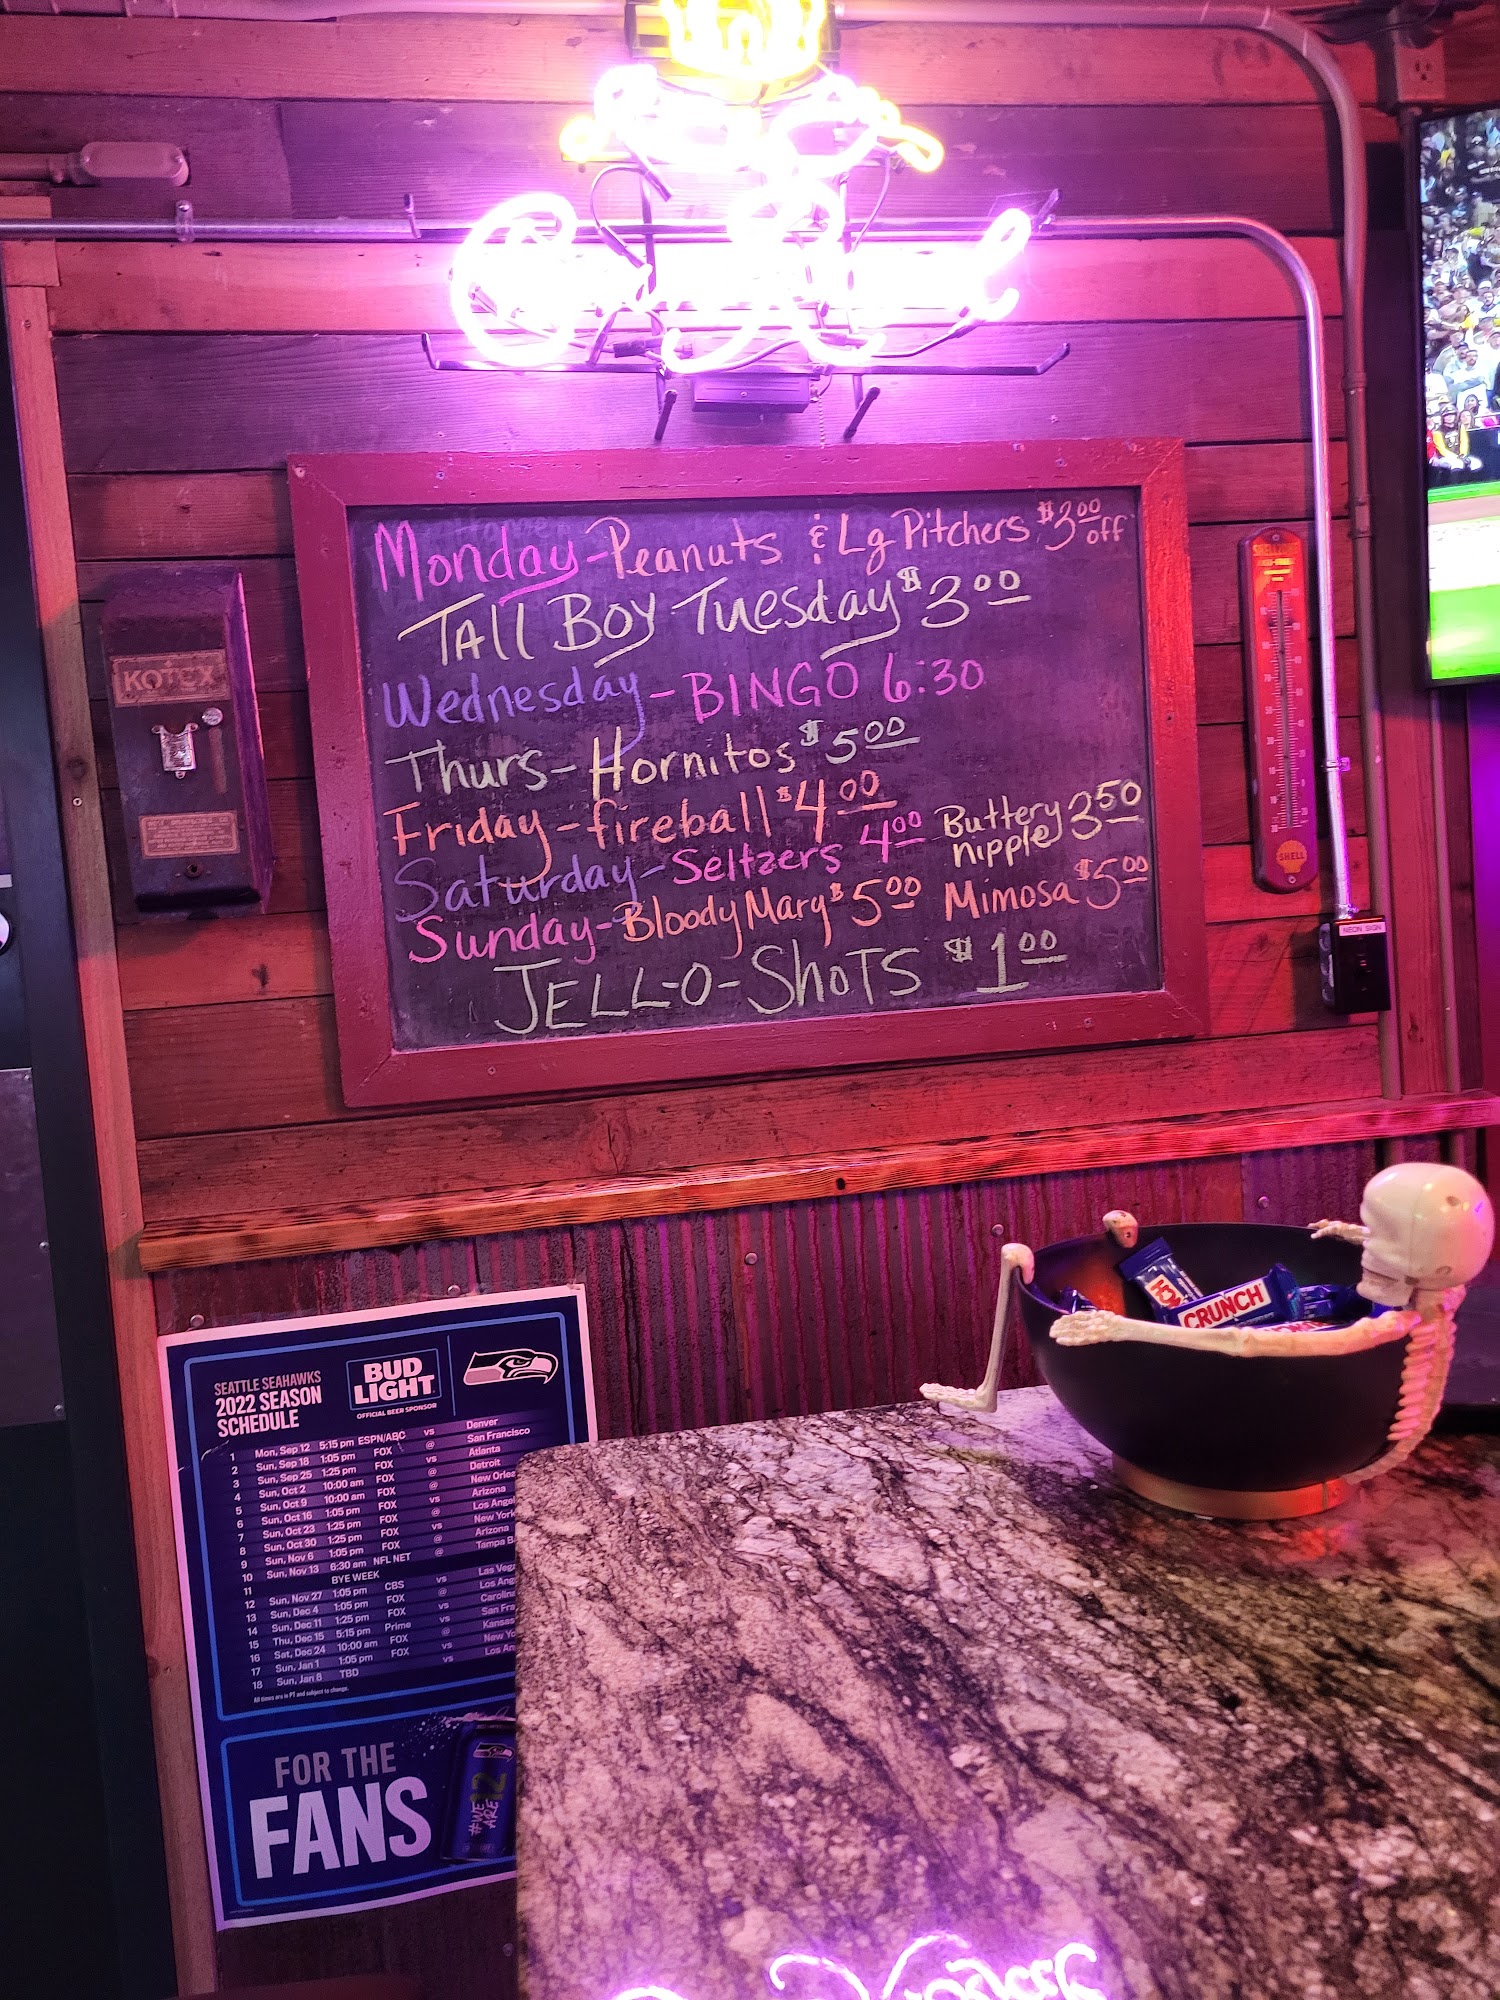 Monday-Peanuts & Lg Pitchers $3.00 off
TAll BOY Tuesday $3.00
Wednesday-BINGO 6:30
Thurs-Hornitos $5.00
Friday-fireball $4.00
Saturday-Seltzers 4.00 Buttery nipple 3.50
Sunday-Bloody Mary $5.00 Mimosa $5.00
JELL-O-SHOTS $1.00
KOTEX
SHELL
NEON SIGN
CRUNCH
SEATTLE SEAHAWKS
2022 SEASON
SCHEDULE
BUD
LIGHT
OFFICIAL BEER SPONSOR
1 Mon, Sep 12 5:15 pm ESPN/ABC vs Denver
2 Sun, Sep 18 1:05 pm FOX @ San Francisco
3 Sun, Sep 25 1:25 pm FOX vs Atlanta
4 Sun, Oct 2 10:00 am FOX @ Detroit
5 Sun, Oct 9 10:00 am FOX @ New Orlea
6 Sun, Oct 16 1:05 pm FOX vs Arizona
7 Sun, Oct 23 1:25 pm FOX @ Los Angel
8 Sun, Oct 30 1:25 pm FOX vs New York
9 Sun, Nov 6 1:05 pm FOX @ Arizona
10 Sun, Nov 13 6:30 am NFL NET @ Tampa B
11 BYE WEEK
12 Sun, Nov 27 1:05 pm CBS vs Las Vega
13 Sun, Dec 4 1:05 pm FOX @ Los Ang
14 Sun, Dec 11 1:25 pm FOX vs Carolina
15 Thu, Dec 15 5:15 pm Prime vs San Fra
16 Sat, Dec 24 10:00 am FOX @ Kansas
17 Sun, Jan 1 1:05 pm FOX vs New Yo
18 Sun, Jan 8 TBD vs Los An
All times are in PT and subject to change.
FOR THE
FANS
#WE
ARE 12